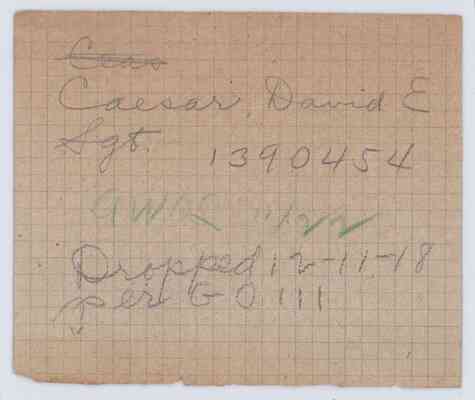 Caesar, David E
Sgt. 1390454
AWOL 11/22
Dropped 12-11-18
per G O 111